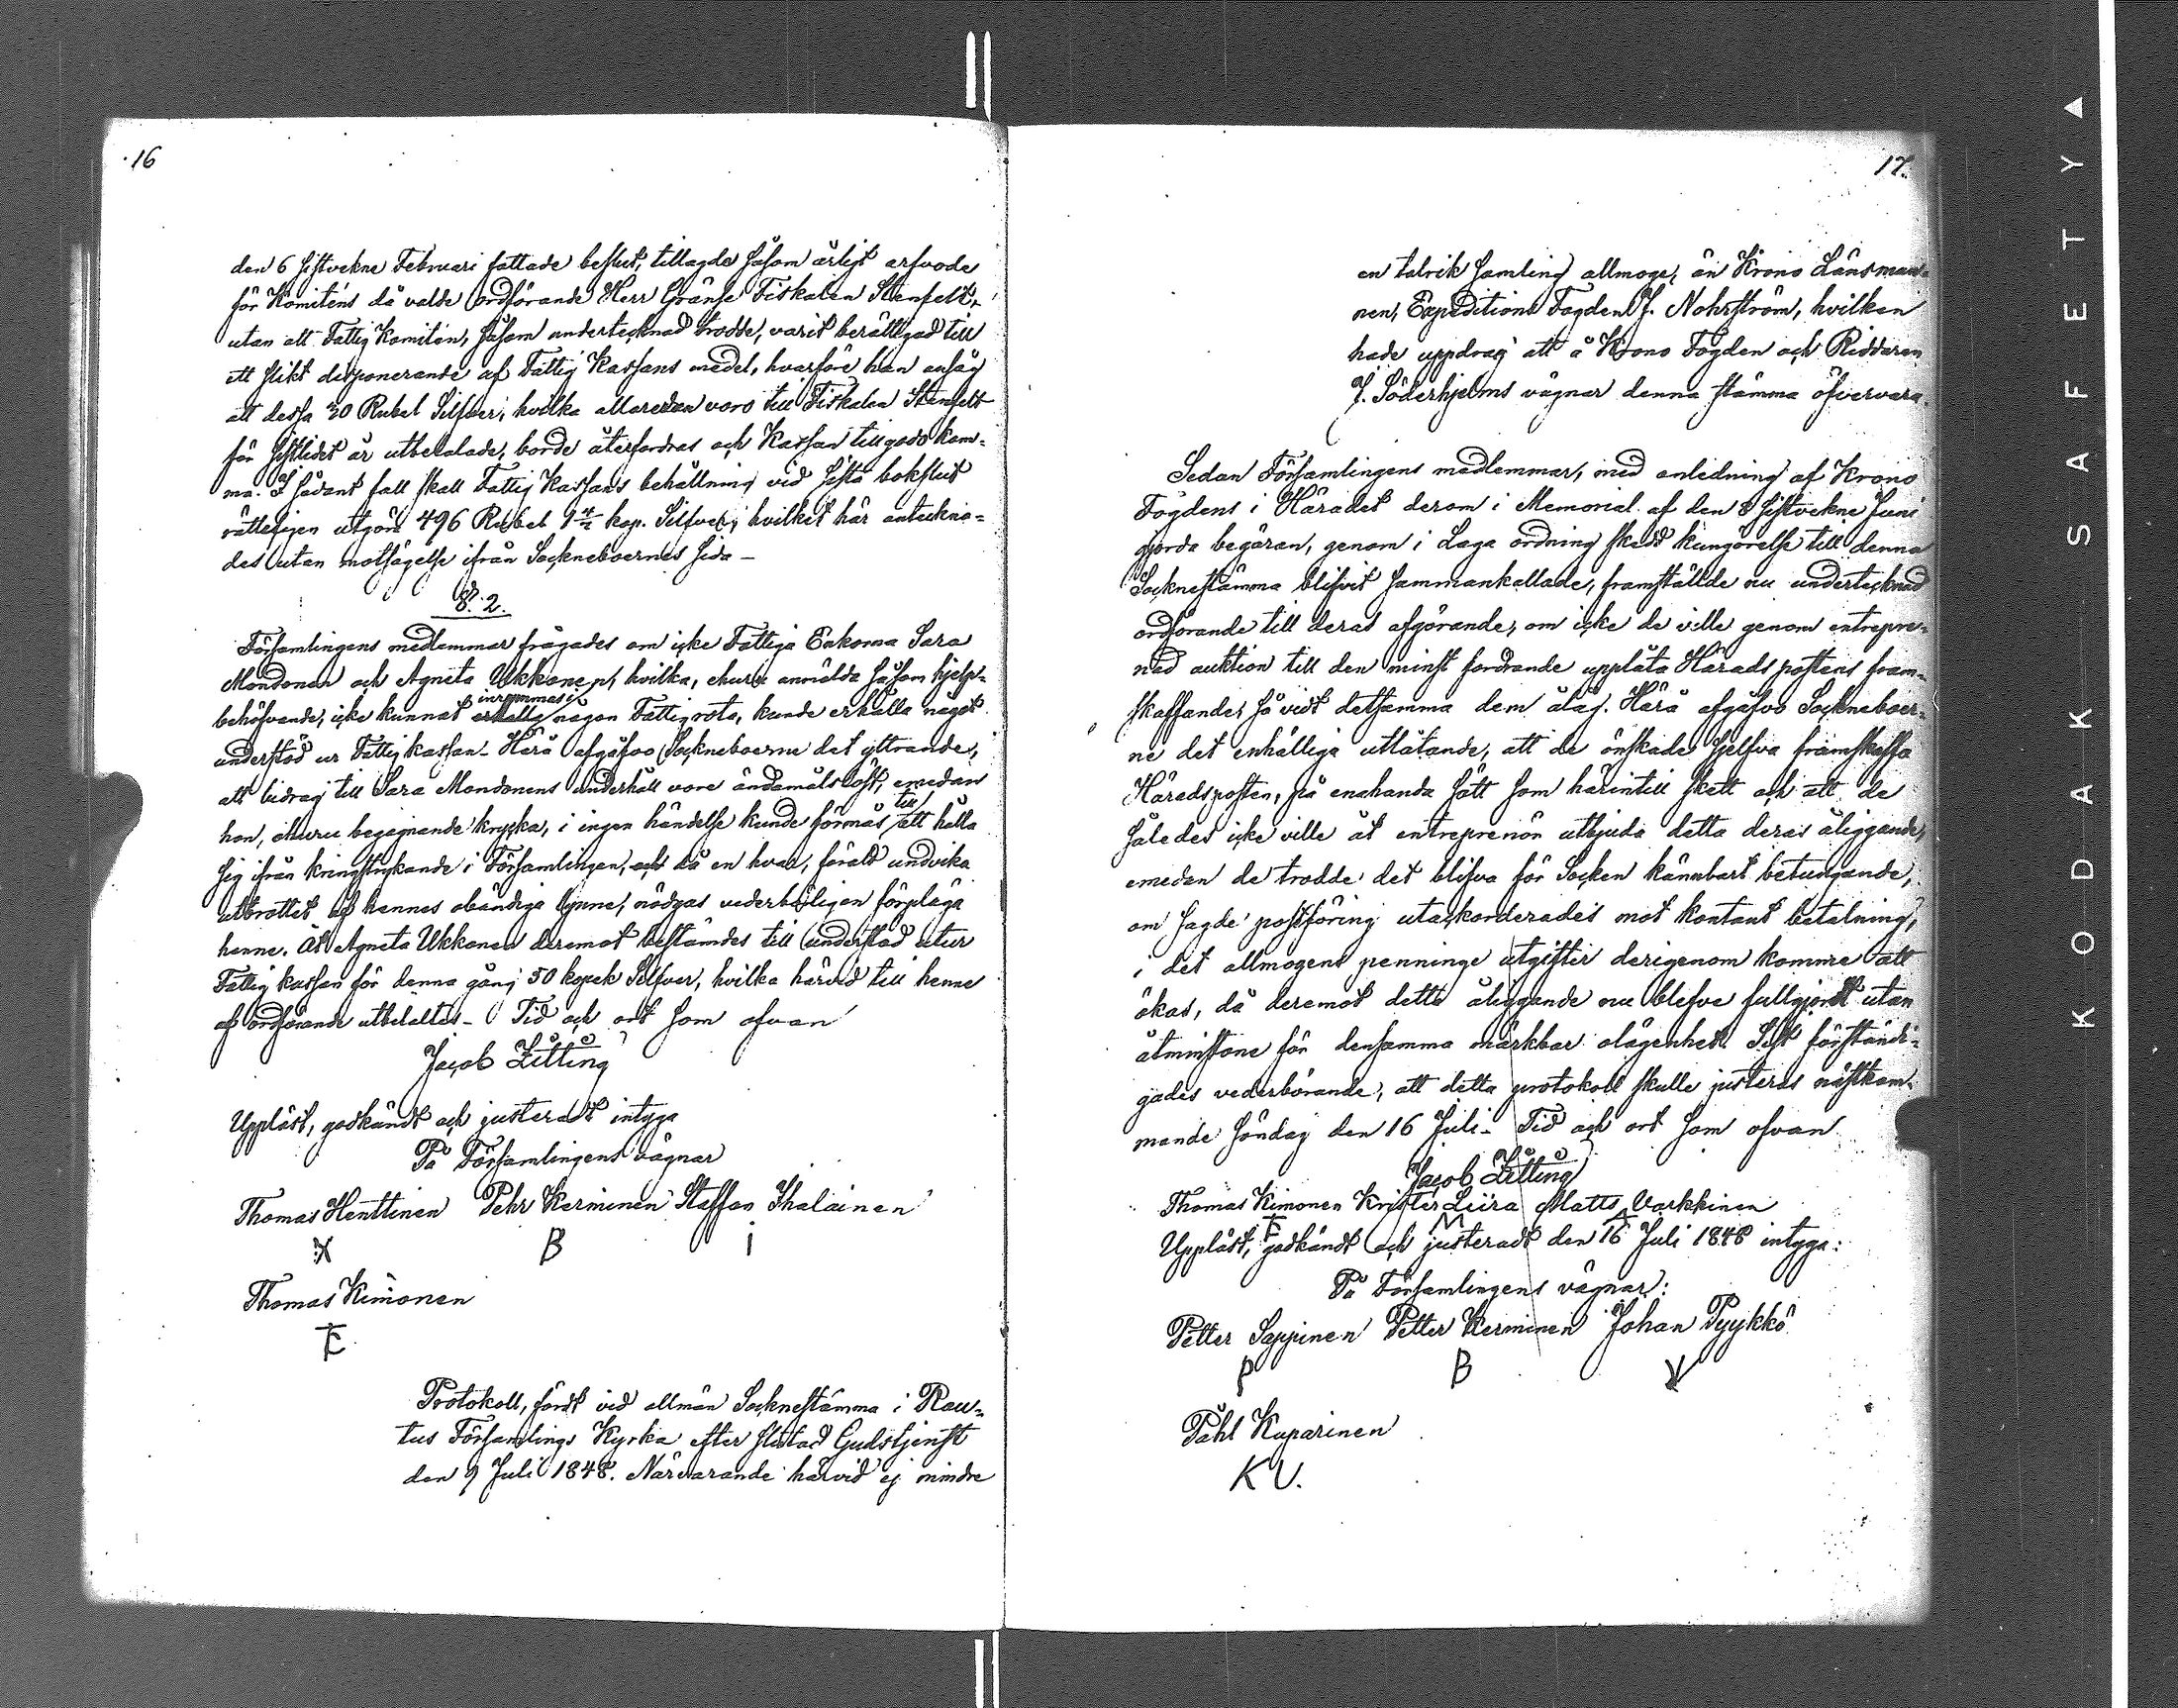 16
den 6 sistvekne Februari fattade beslut, tillagde såsom årligt arfvode
för Komiténs då valde ordförande Herr Gränse Fiskalen Stenfelt,
utan att Fattig Komitén, såsom undertecknad trodde, varit berättigad till
ett slikt disponerande af Fattig Kassans medel, hvarföre han ansåg
att dessa 20 Rubel Silfver, hvilka allaredan voro till Fiskalen Stenfelt
för sistlidet år utbetalade, borde återfordras och Kassan tillgodo kom-
ma. I sådant fall skall Fattig Kassans behållning vid sista bokslut
rätteligen utgöra 496 Rubel kop. Silfver, hvilket här anteckna-
des utan motsägelse ifrån Sockneboernes sida –
§. 2.
Församlingens medlemmar frågades om icke Fattiga Enkorna Sara
Mondonen och Agneta Ukkonen, hvilka, ehuru anmälda såsom hjelp-
behöfvande, icke kunnat erhålla inrymmas i någon Fattigrota, kunde erhålla något
understöd ur Fattigkassan – Härå afgåfvo Sockneboerne det yttrande,
att bidrag till Sara Mondonens underhåll vore ändamålslöst, emedan
hon, ehuru begagnande krycka, i ingen händelse kunde förmås till att hålla
sig ifrån kringstrykande i Församlingen, och då en hvar, för att undvika
utbrottet af hennes obändiga lynne, nödgas vederbörligen förpläga
henne. Åt Agneta Ukkonen deremot bestämdes till understöd utur
Fattig kassan för denna gång 50 kopek Silfver, hvilka härvid till henne
af ordförande utbetaltes – Tid och ort som ofvan
Jacob Zitting
Uppläst, godkändt och justeradt intyga
På Församlingens vägnar
Thomas Henttinen Pehr Kerminen Staffan Ihalainen
B I
Thomas Kimonen
Protokoll, fördt vid allmän Socknestämma i Rau-
tus Församlings Kyrka efter slutad Gudstjenst
den 9 Juli 1848. Närvarande härvid ej mindre
17.
en talrik samling allmoge, än Krono Länsman-
nen, Expeditions Fogden J. Nohrström, hvilken
hade uppdrag att å Krono Fogden och Riddaren
J. Söderhjelms vägnar denna stämma öfvervara.
Sedan Församlingens medlemmar, med anledning af Krono
Fogdens i Häradet derom i Memorial af den 8 sistvekne Juni
gjorda begäran, genom i Laga ordning skedd kungörelse till denna
Sockenstämma blifvit sammankallade, framställde nu undertecknad
ordförande till deras afgörande, om icke de ville genom entrepre-
nad auktion till den minst fordrande upplåta Häradspostens fram-
skaffande, så vidt detsamma dem ålåg. Härå afgåfvo Sockneboer-
ne det enhälliga utlåtande, att de önskade sjelfva framskaffa
Häradsposten, på enahanda sätt som härintill skett och att de
således icke ville åt entreprenör utbjuda detta deras åliggande,
emedan de trodde det blifva för Socken kännbart betungande,
om sagde postföring utackorderades mot kontant betalning,
i det allmogens penninge utgifter derigenom komme att
ökas, då deremot detta åliggande nu blefve fullgjordt utan
åtminstone för densamma märkbar olägenhet. Sist förständi-
gades vederbörande, att detta protokoll skulle justeras nästkom-
mande Söndag den 16 Juli – Tid och ort som ofvan
Jacob Zitting
Thomas Kimonen Krister Liira Matts Varkkinen
M
Uppläst, godkändt och justeradt den 16 Juli 1848 intyga:
På Församlingens vägnar:
Petter Sappinen Petter Kerminen Johan Pyykkö
P B
Påhl Kuparinen
KU.
KODAK SAFETY